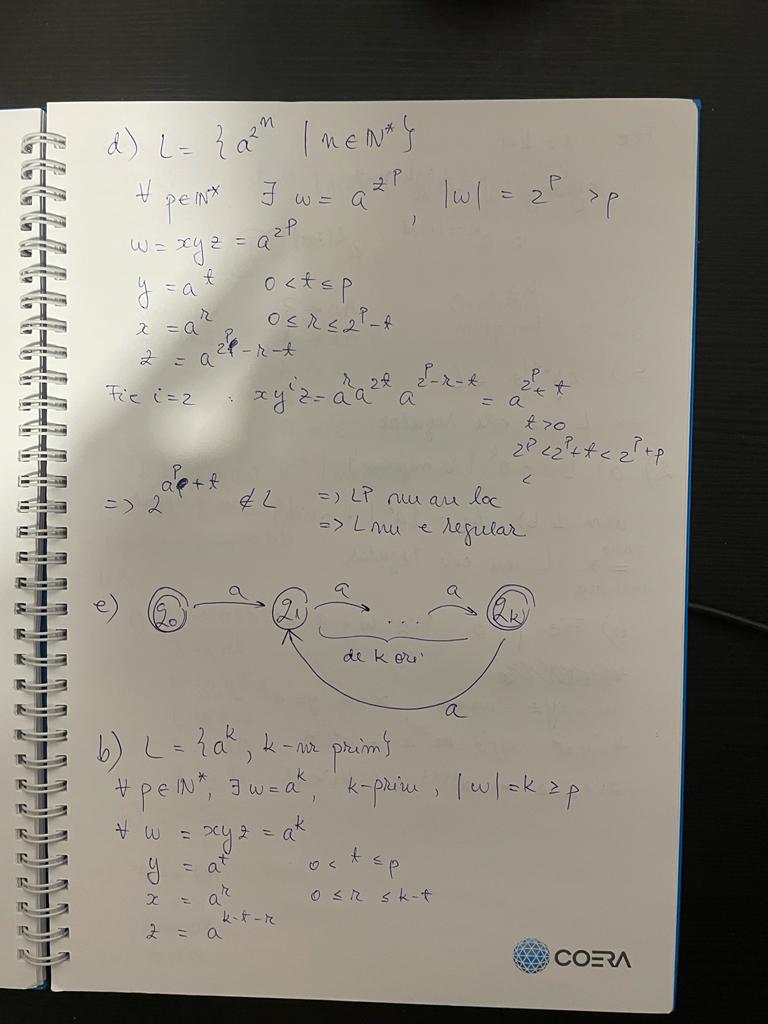 d) L = { a^{2^n} | n ∈ ℕ* }
∀ p∈ℕ* ∃ w = a^{2^p}, |w| = 2^p > p
w = xyz = a^{2^p}
y = a^t 0 < t ≤ p
x = a^r 0 ≤ r ≤ 2^p - t
z = a^{2^p - r - t}
Fie i=2 : xy^iz = a^r a^{2t} a^{2^p - r - t} = a^{2^p + t}
t > 0
2^p < 2^p + t < 2^p + p
<
=> 2^{a^p + t} ∉ L => LP nu are loc
=> L nu e regular
e) q0 a q1 a ... a qk
de k ori
a
b) L = {a^k, k-nr prim}
∀ p∈ℕ*, ∃ w = a^k, k-prim, |w| = k ≥ p
∀ w = xyz = a^k
y = a^t 0 < t ≤ p
x = a^r 0 ≤ r ≤ k-t
z = a^{k-t-r}
COERA